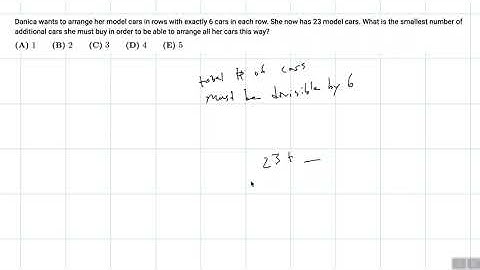 Danica wants to arrange her model cars in rows with exactly 6 cars in each row. She now has 23 model cars. What is the smallest number of
additional cars she must buy in order to be able to arrange all her cars this way?
(A) 1 (B) 2 (C) 3 (D) 4 (E) 5
total # of cars
must be divisible by 6
23 + __